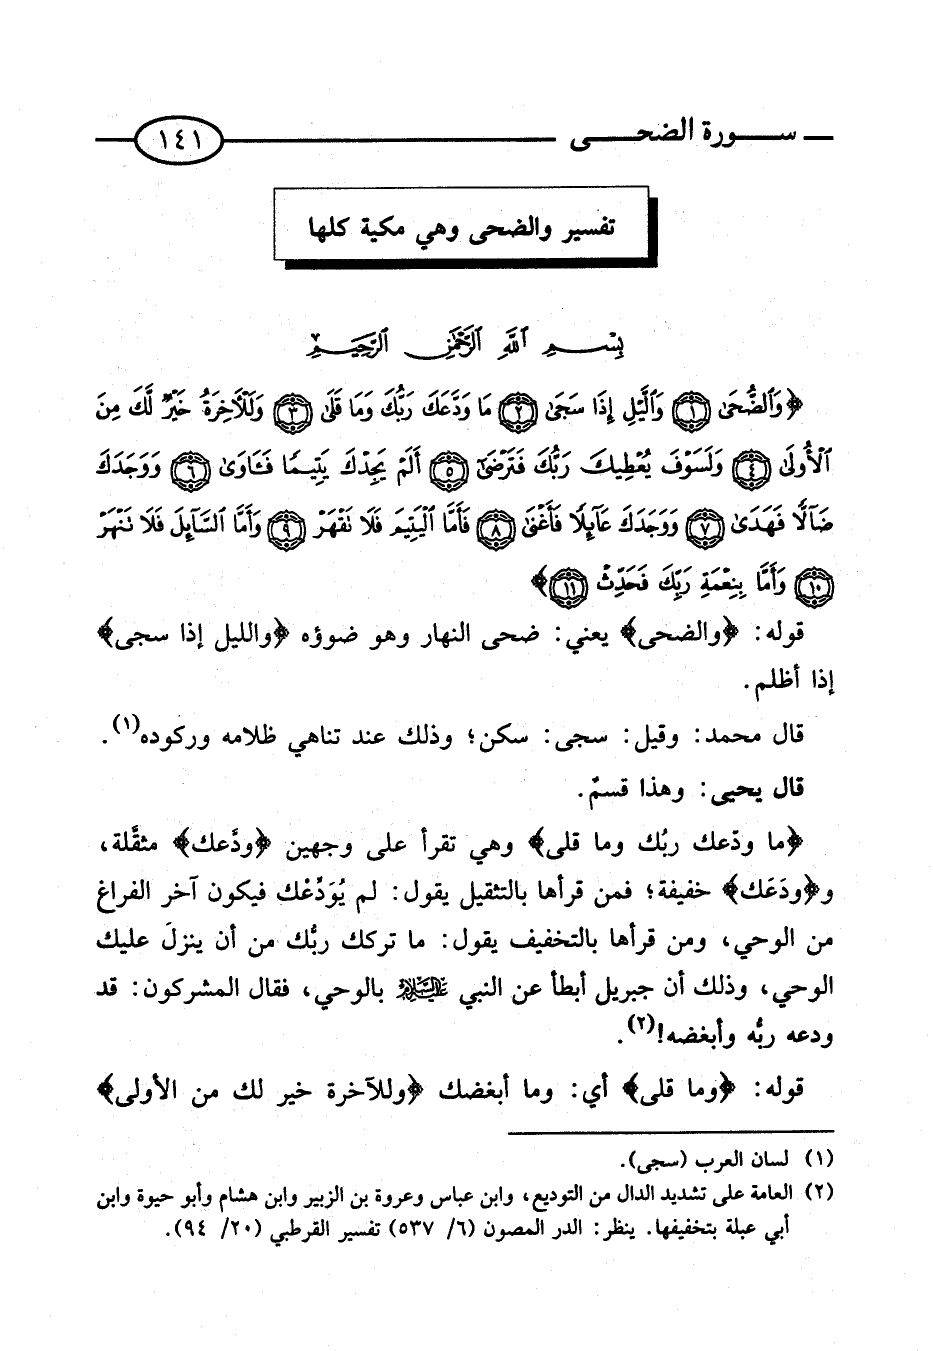 سورة الضحى
١٤١
تفسير والضحى وهي مكية كلها
بِسْمِ ٱللَّهِ ٱلرَّحْمَٰنِ ٱلرَّحِيمِ
﴿وَٱلضُّحَىٰ ١ وَٱلَّيْلِ إِذَا سَجَىٰ ٢ مَا وَدَّعَكَ رَبُّكَ وَمَا قَلَىٰ ٣ وَلَلْآخِرَةُ خَيْرٌ لَّكَ مِنَ
ٱلْأُولَىٰ ٤ وَلَسَوْفَ يُعْطِيكَ رَبُّكَ فَتَرْضَىٰٓ ٥ أَلَمْ يَجِدْكَ يَتِيمًا فَـَٔاوَىٰ ٦ وَوَجَدَكَ
ضَآلًّا فَهَدَىٰ ٧ وَوَجَدَكَ عَآئِلًا فَأَغْنَىٰ ٨ فَأَمَّا ٱلْيَتِيمَ فَلَا تَقْهَرْ ٩ وَأَمَّا ٱلسَّآئِلَ فَلَا تَنْهَرْ
١٠ وَأَمَّا بِنِعْمَةِ رَبِّكَ فَحَدِّثْ ١١﴾
قوله: ﴿والضحى﴾ يعني: ضحى النهار وهو ضوؤه ﴿والليل إذا سجى﴾
إذا أظلم.
قال محمد: وقيل: سجى: سكن؛ وذلك عند تناهي ظلامه وركوده(١).
قال يحيى: وهذا قسمٌ.
﴿ما ودّعك ربُّك وما قلى﴾ وهي تقرأ على وجهين ﴿ودَّعك﴾ مثقَّلة،
و﴿ودَعَك﴾ خفيفة؛ فمن قرأها بالتثقيل يقول: لم يُوَدِّعْك فيكون آخر الفراغ
من الوحي، ومن قرأها بالتخفيف يقول: ما تركك ربُّك من أن ينزلَ عليك
الوحي، وذلك أن جبريل أبطأ عن النبي عليه السلام بالوحي، فقال المشركون: قد
ودعه ربُّه وأبغضه!(٢).
قوله: ﴿وما قلى﴾ أي: وما أبغضك ﴿وللآخرة خير لك من الأولى﴾
(١) لسان العرب (سجى).
(٢) العامة على تشديد الدال من التوديع، وابن عباس وعروة بن الزبير وابن هشام وأبو حيوة وابن
أبي عبلة بتخفيفها. ينظر: الدر المصون (٦/ ٥٣٧) تفسير القرطبي (٢٠/ ٩٤).